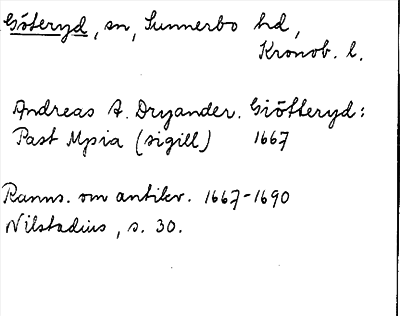 Göteryd, sn, Sunnerbo hd,
Kronob. l.
Andreas A. Dryander. Giötteryd:
Past Mpia (sigill) 1667
Ranns. om antikv. 1667-1690
Nilstadius, s. 30.